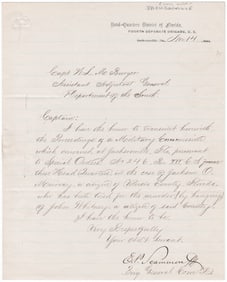 JACKSONVILLE
Head-Quarters District of Florida,
FOURTH SEPARATE BRIGADE, D. S.
Jacksonville, Fla. Nov 14
Capt W. L. M. Burger
Assistant Adjutant General
Department of the South
Captain
I have the honor to transmit herewith
the Proceedings of a Military Commission
which convened at Jacksonville Fla, pursuant
to Special Orders No 246. Par
Head Quarters in the case of Jackson O.
a citizen of County Florida
who has been tried for the murder (by hanging)
of John a citizen of said County
I have the honor to be,
Very Respectfully
Your Obdt Servant.
E. P. Scammon
Brig General Comd